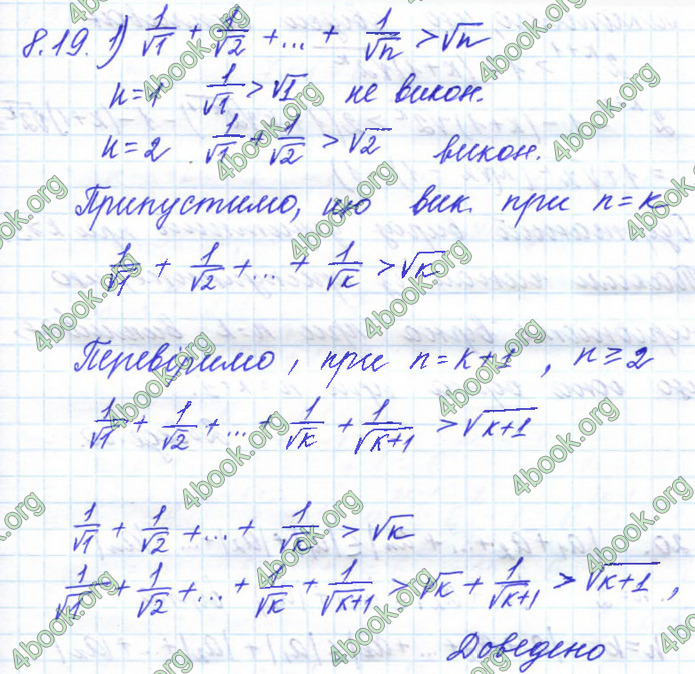 8.19. 1) 1/√1 + 1/√2 + ... + 1/√n > √n
n=1 1/√1 > √1 не викон.
n=2. 1/√1 + 1/√2 > √2 викон.
Припустимо, що вик. при n=k
1/√1 + 1/√2 + ... + 1/√k > √k
Перевіримо, при n=k+1, n≥2
1/√1 + 1/√2 + ... + 1/√k + 1/√k+1 > √k+1
1/√1 + 1/√2 + ... + 1/√k > √k
1/√1 + 1/√2 + ... + 1/√k + 1/√k+1 > √k + 1/√k+1 > √k+1,
Доведено
4book.org